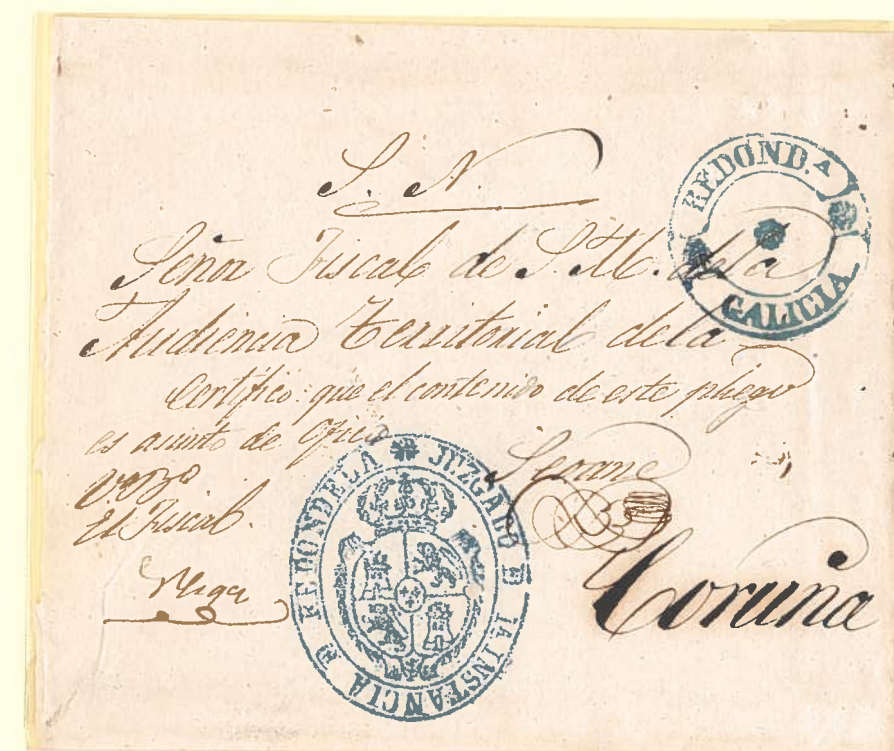 S. N.
REDOND.A
GALICIA
Señor Fiscal de S. M. de la
Audiencia Territorial de la
Certifico que el contenido de este pliego
es asunto de oficio
Seoane
VºBº
El Fiscal.
Vega
Coruña
JUZGADO DE 1A INSTANCIA DE REDONDELA